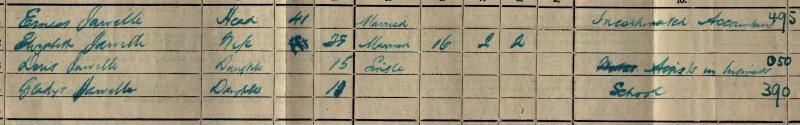 Ernest Jarvelle Head 41 Married Incorporated Accountant 495
Elizabeth Jarvelle Wife 39 Married 16 2 2
Doris Jarvelle Daughter 15 Single Assists in 050
Gladys Jarvelle Daughter School 390